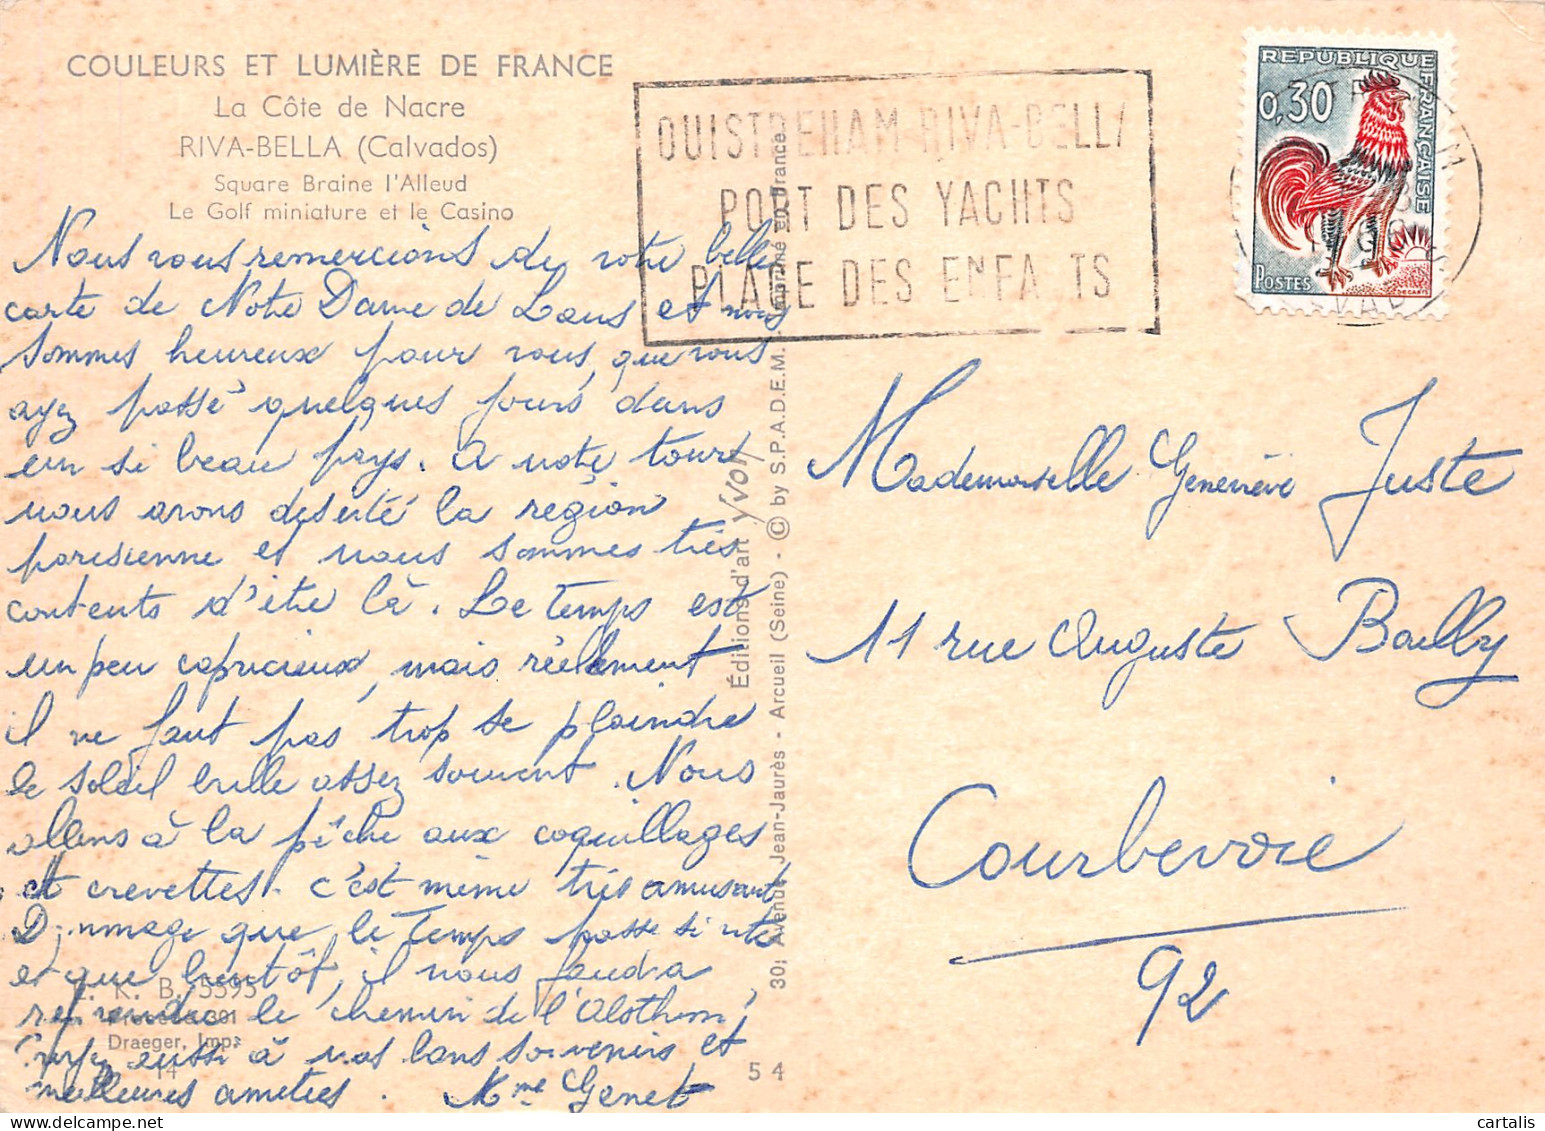 COULEURS ET LUMIÈRE DE FRANCE
La Côte de Nacre
RIVA-BELLA (Calvados)
Square Braine l'Alleud
Le Golf miniature et le Casino
OUISTREHAM-RIVA-BELLA
PORT DES YACHTS
PLAGE DES ENFA TS
REPUBLIQUE FRANÇAISE
0,30
POSTES
DECARIS
Nous vous remercions de votre belle
carte de Notre Dame de Laus et nous
sommes heureux pour vous, que vous
ayez passé quelques jours dans
un si beau pays. A notre tour
nous avons deserté la région
parisienne et nous sommes très
contents d'être là. Le temps est
un peu capricieux, mais réellement
il ne faut pas trop se plaindre
le soleil brille assez souvent. Nous
allons à la pêche aux coquillages
et crevettes - c'est même très amusant
Dommage que le temps passe si vite
et que bientôt, il nous faudra
reprendre le chemin de l'
aussi à nos bons souvenirs et
meilleures amitiés. Mme Genet
Éditions d'art Yvon
30, Avenue Jean-Jaurès - Arcueil (Seine) - © by S.P.A.D.E.M. - Imprimé en France
Mademoiselle Geneviève Juste
11 rue Auguste Bailly
Courbevoie
92
K. B. 5595
Draeger, Imp.
14
54
cartalis